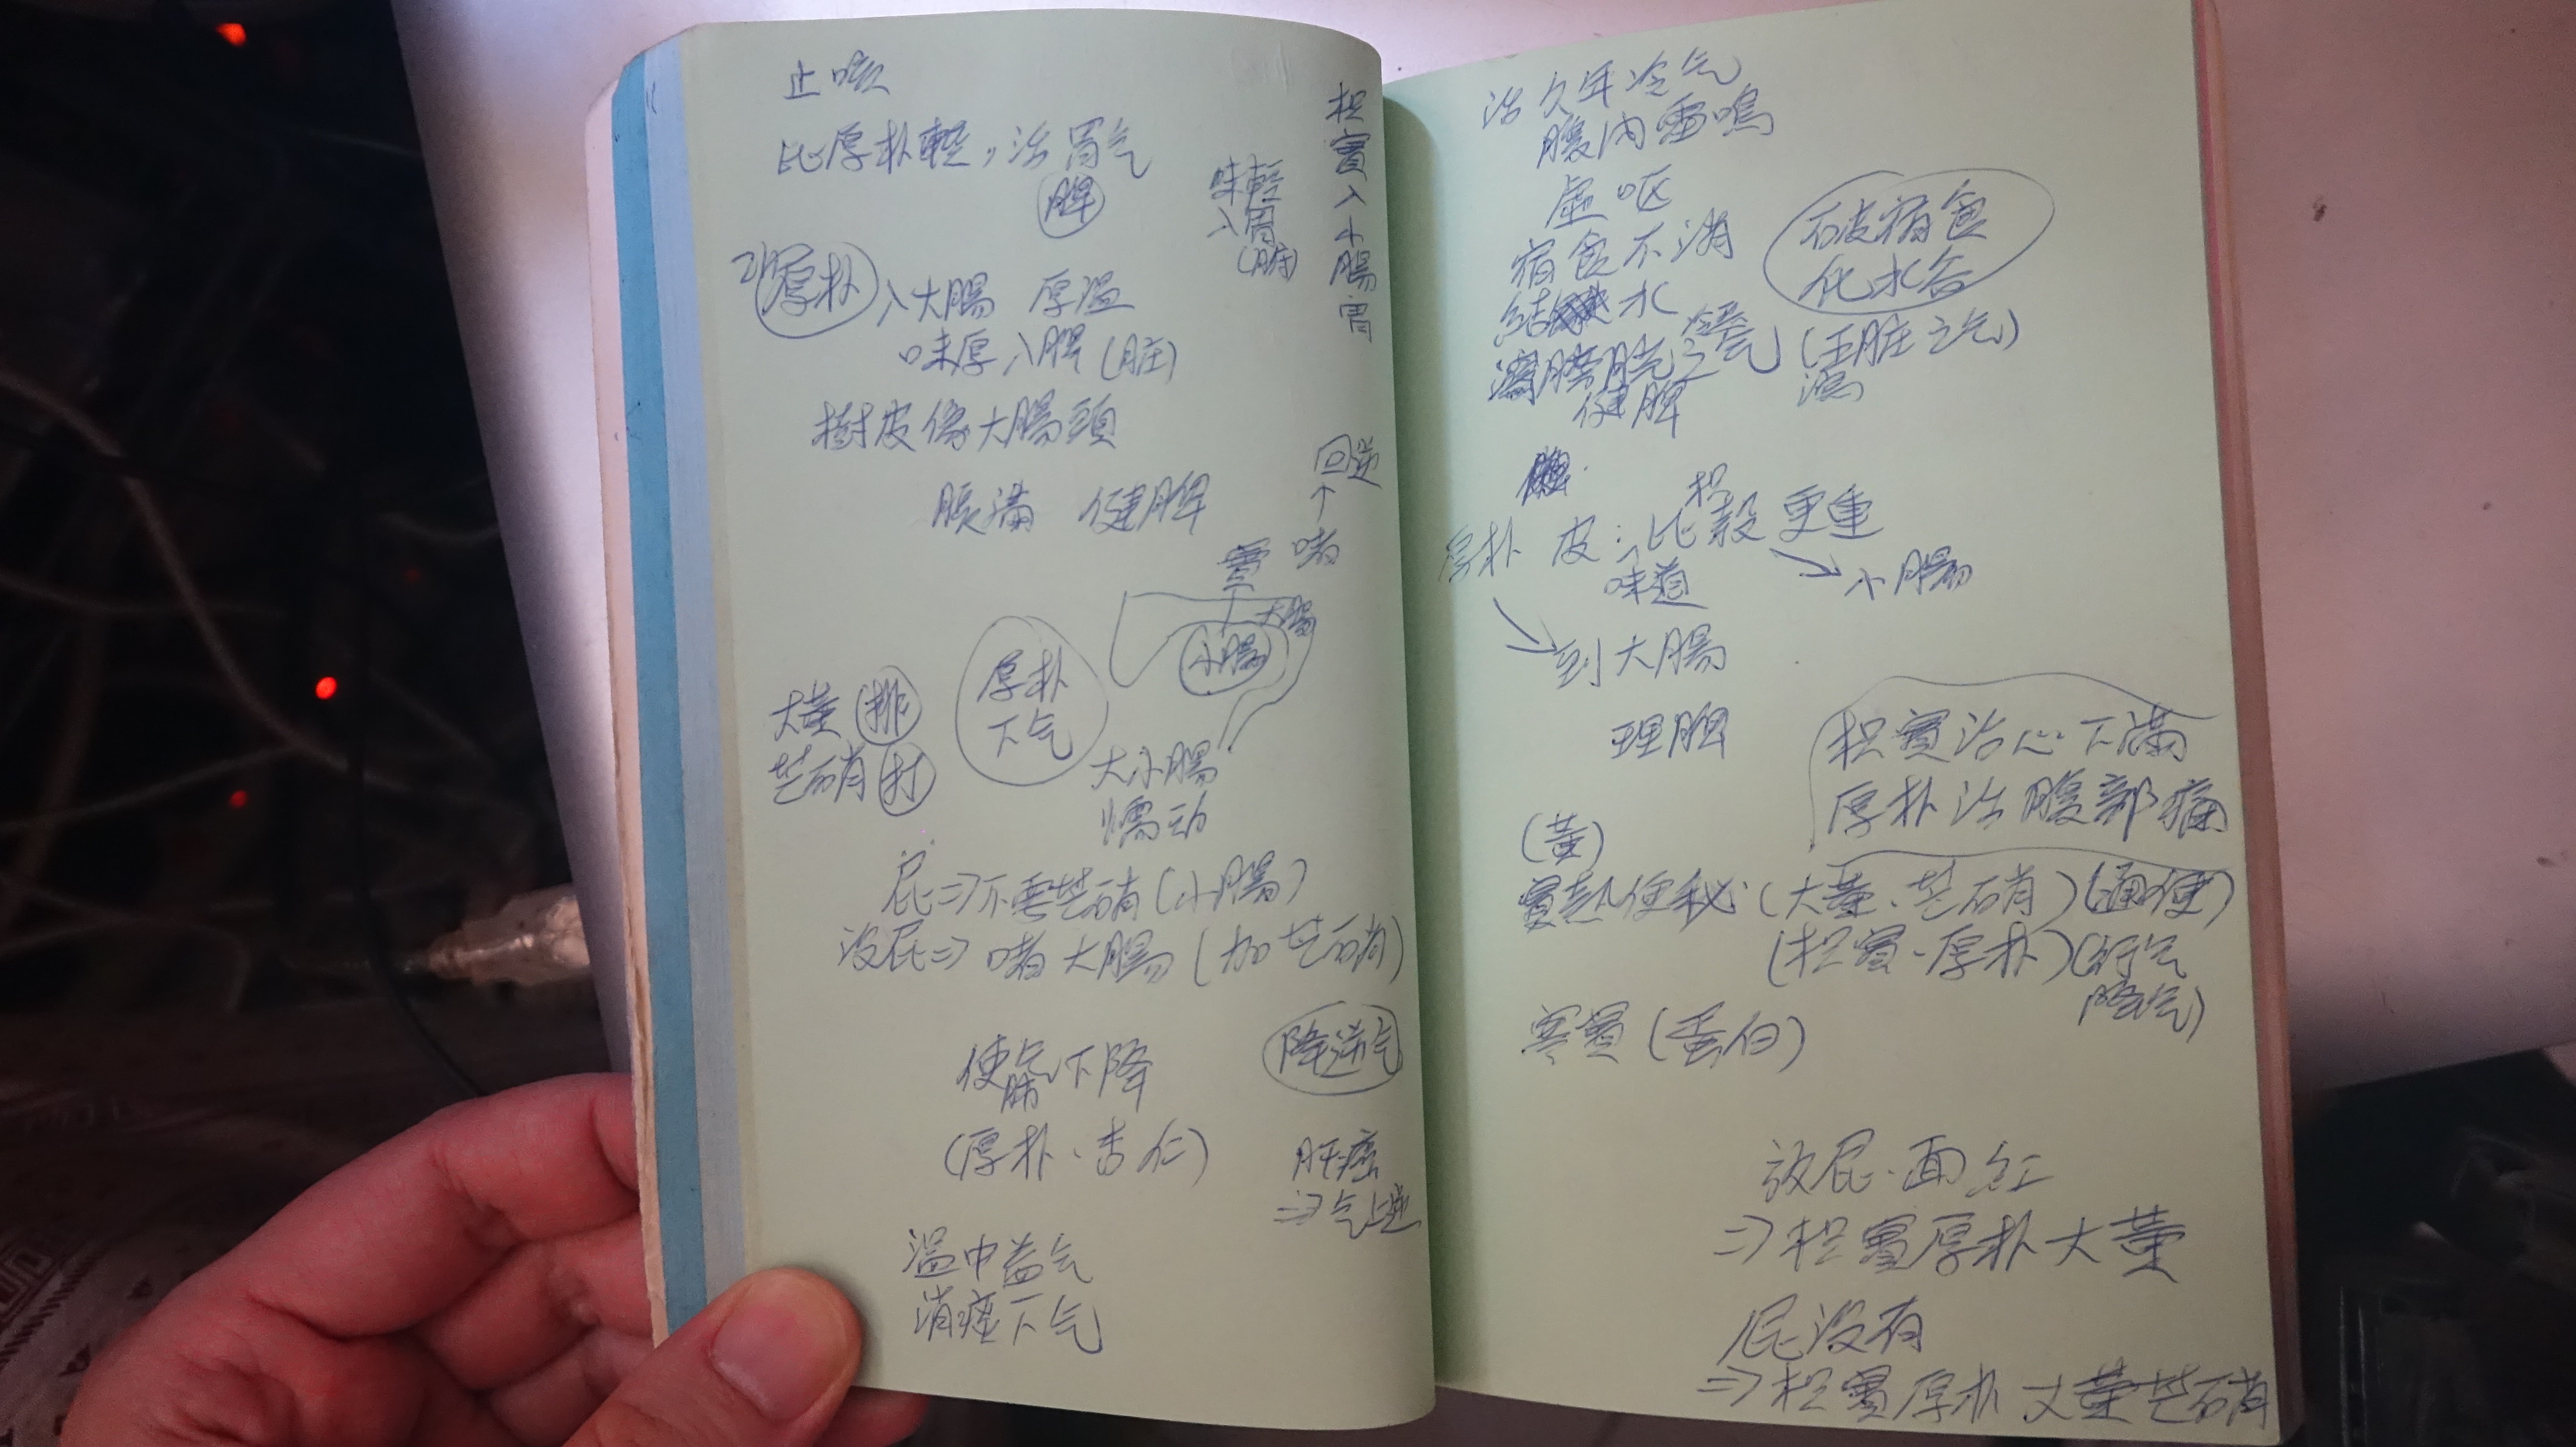 止咳
比厚朴輕，治胃气
脾
味輕
入胃
(腑)
枳實入小腸胃
厚朴 入大腸 厚温
味厚入脾(脏)
樹皮像大腸頭
脹滿 健脾
回逆
↑
堵
實
大腸
小腸
厚朴
下气
大黃 排
芒硝 打
大小腸
蠕动
屁⇒不要芒硝(小腸)
没屁⇒ 堵大腸(加芒硝)
使气下降
肺
(厚朴、杏仁)
降逆气
肝癌
⇒气上逆
温中益气
消痰下气
治久年冷气
腹内雷鳴
虛呕
宿食不消
結水
瀉膀胱之气
健脾
破宿食
化水谷
(五脏之气)
瀉
厚朴 皮：比枳殼更重
味道
→小腸
→到大腸
理脾
枳實治心下滿
厚朴治腹部痛
(黃)
實熱便秘(大黃、芒硝)(通便)
(枳實、厚朴)(行气
降气)
寒實(蛋白)
放屁、面红
⇒枳實厚朴大黃
屁没有
⇒枳實厚朴大黃芒硝